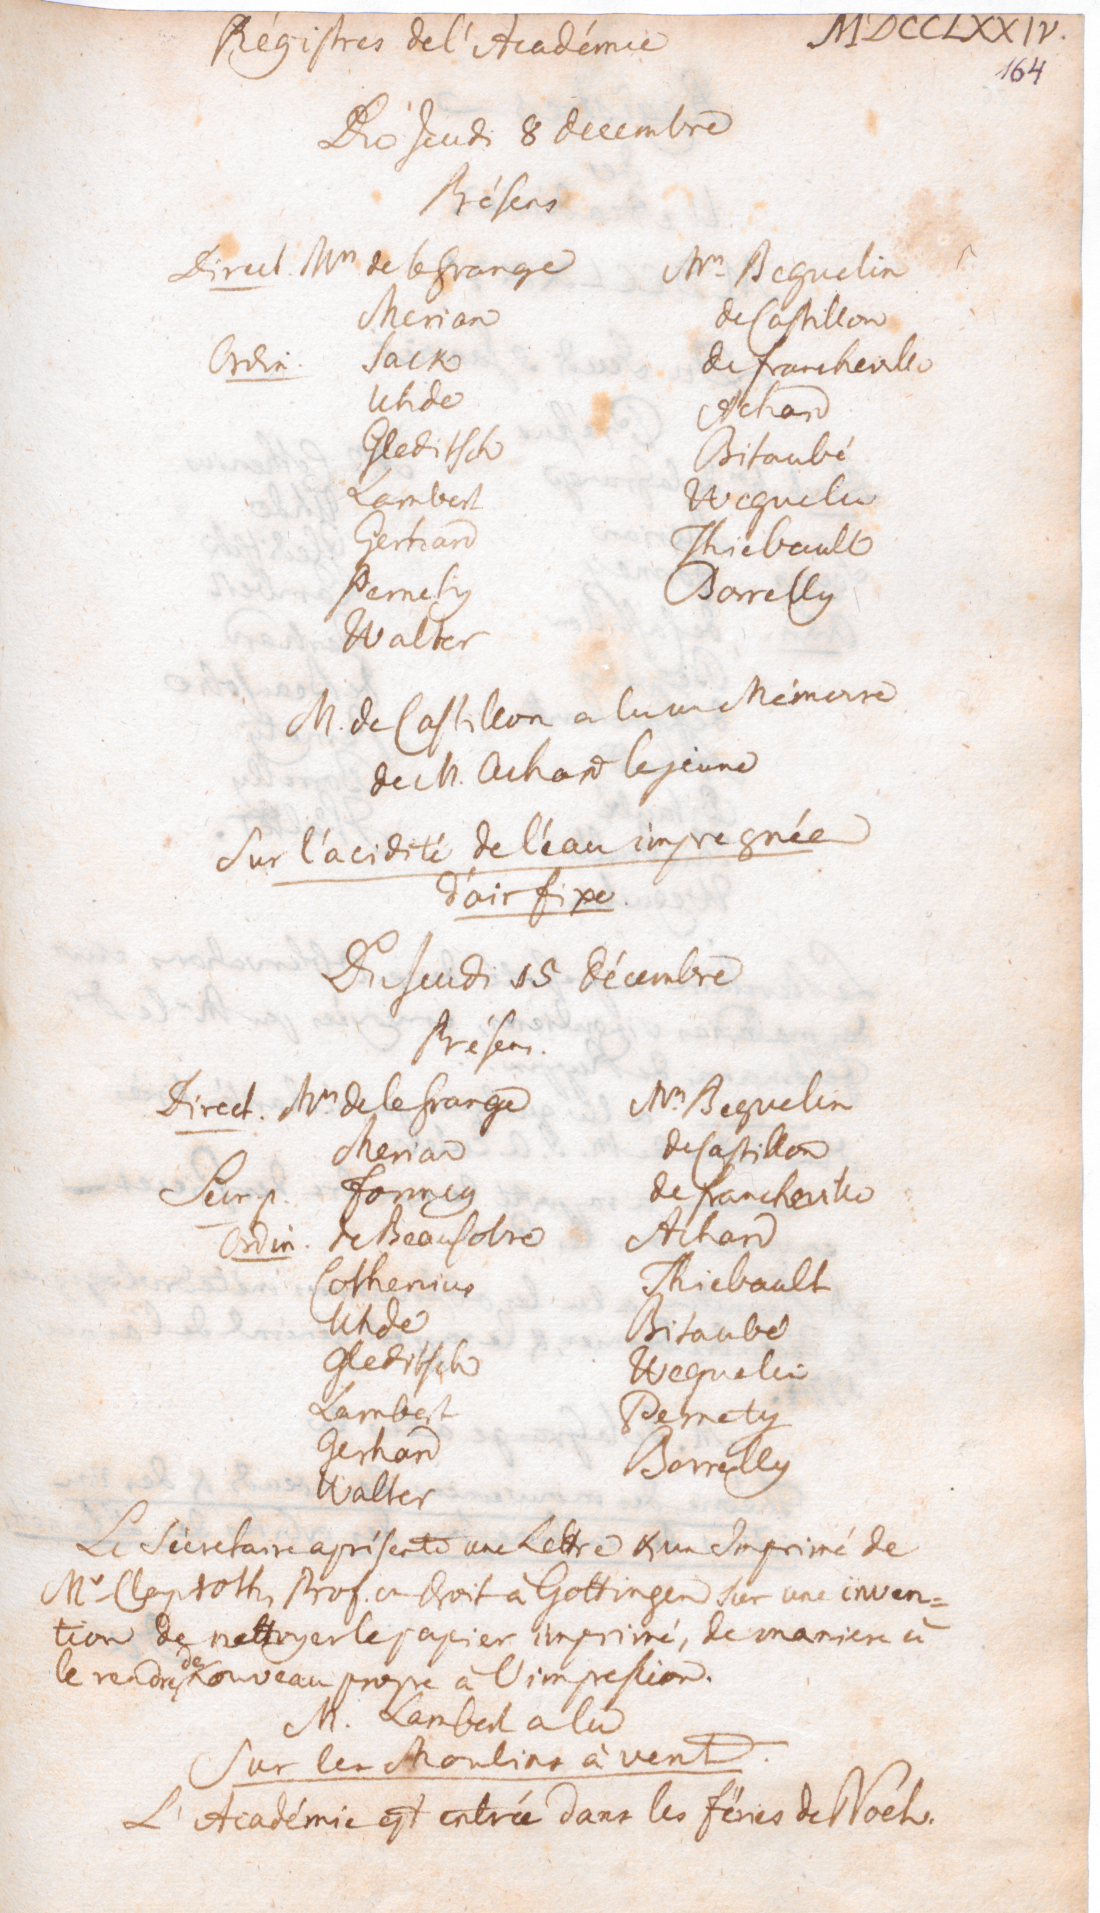 Régistres de l'Académie MDCCLXXIV.
164
Du Jeudi 8 decembre
Présens
Direct. Mrs de la Grange Mrs Beguelin
Merian de Castillon
Ordin. Sack de Francheville
Uhde Achard
Gleditsch Bitaubé
Lambert Weguelin
Gerhard Thiebault
Pernety Borrelly
Walter
M. de Castillon a lu un Mémoire
de M. Achard le jeune
Sur l'acidité de l'éau impregnée
d'air fixe.
Du Jeudi 15 décembre
Présens.
Direct. Mrs de la Grange Mrs Beguelin
Merian de Castillon
Secr. p. Formey de Francheville
Ordin. de Beausobre Achard
Cothenius Thiebault
Uhde Bitaubé
Gleditsch Weguelin
Lambert Pernety
Gerhard Borrelly
Walter
Le Sécretaire a présenté une Lettre & un Imprimé de
Mr Claproth, Prof. en droit à Gottingen sur une inven=
tion de nettoyer le papier imprimé, de maniere à
le rendre de nouveau propre à l'impression.
M. Lambert a lu
Sur les Moulins à vent.
L'Académie est entrée dans les féries de Noel.